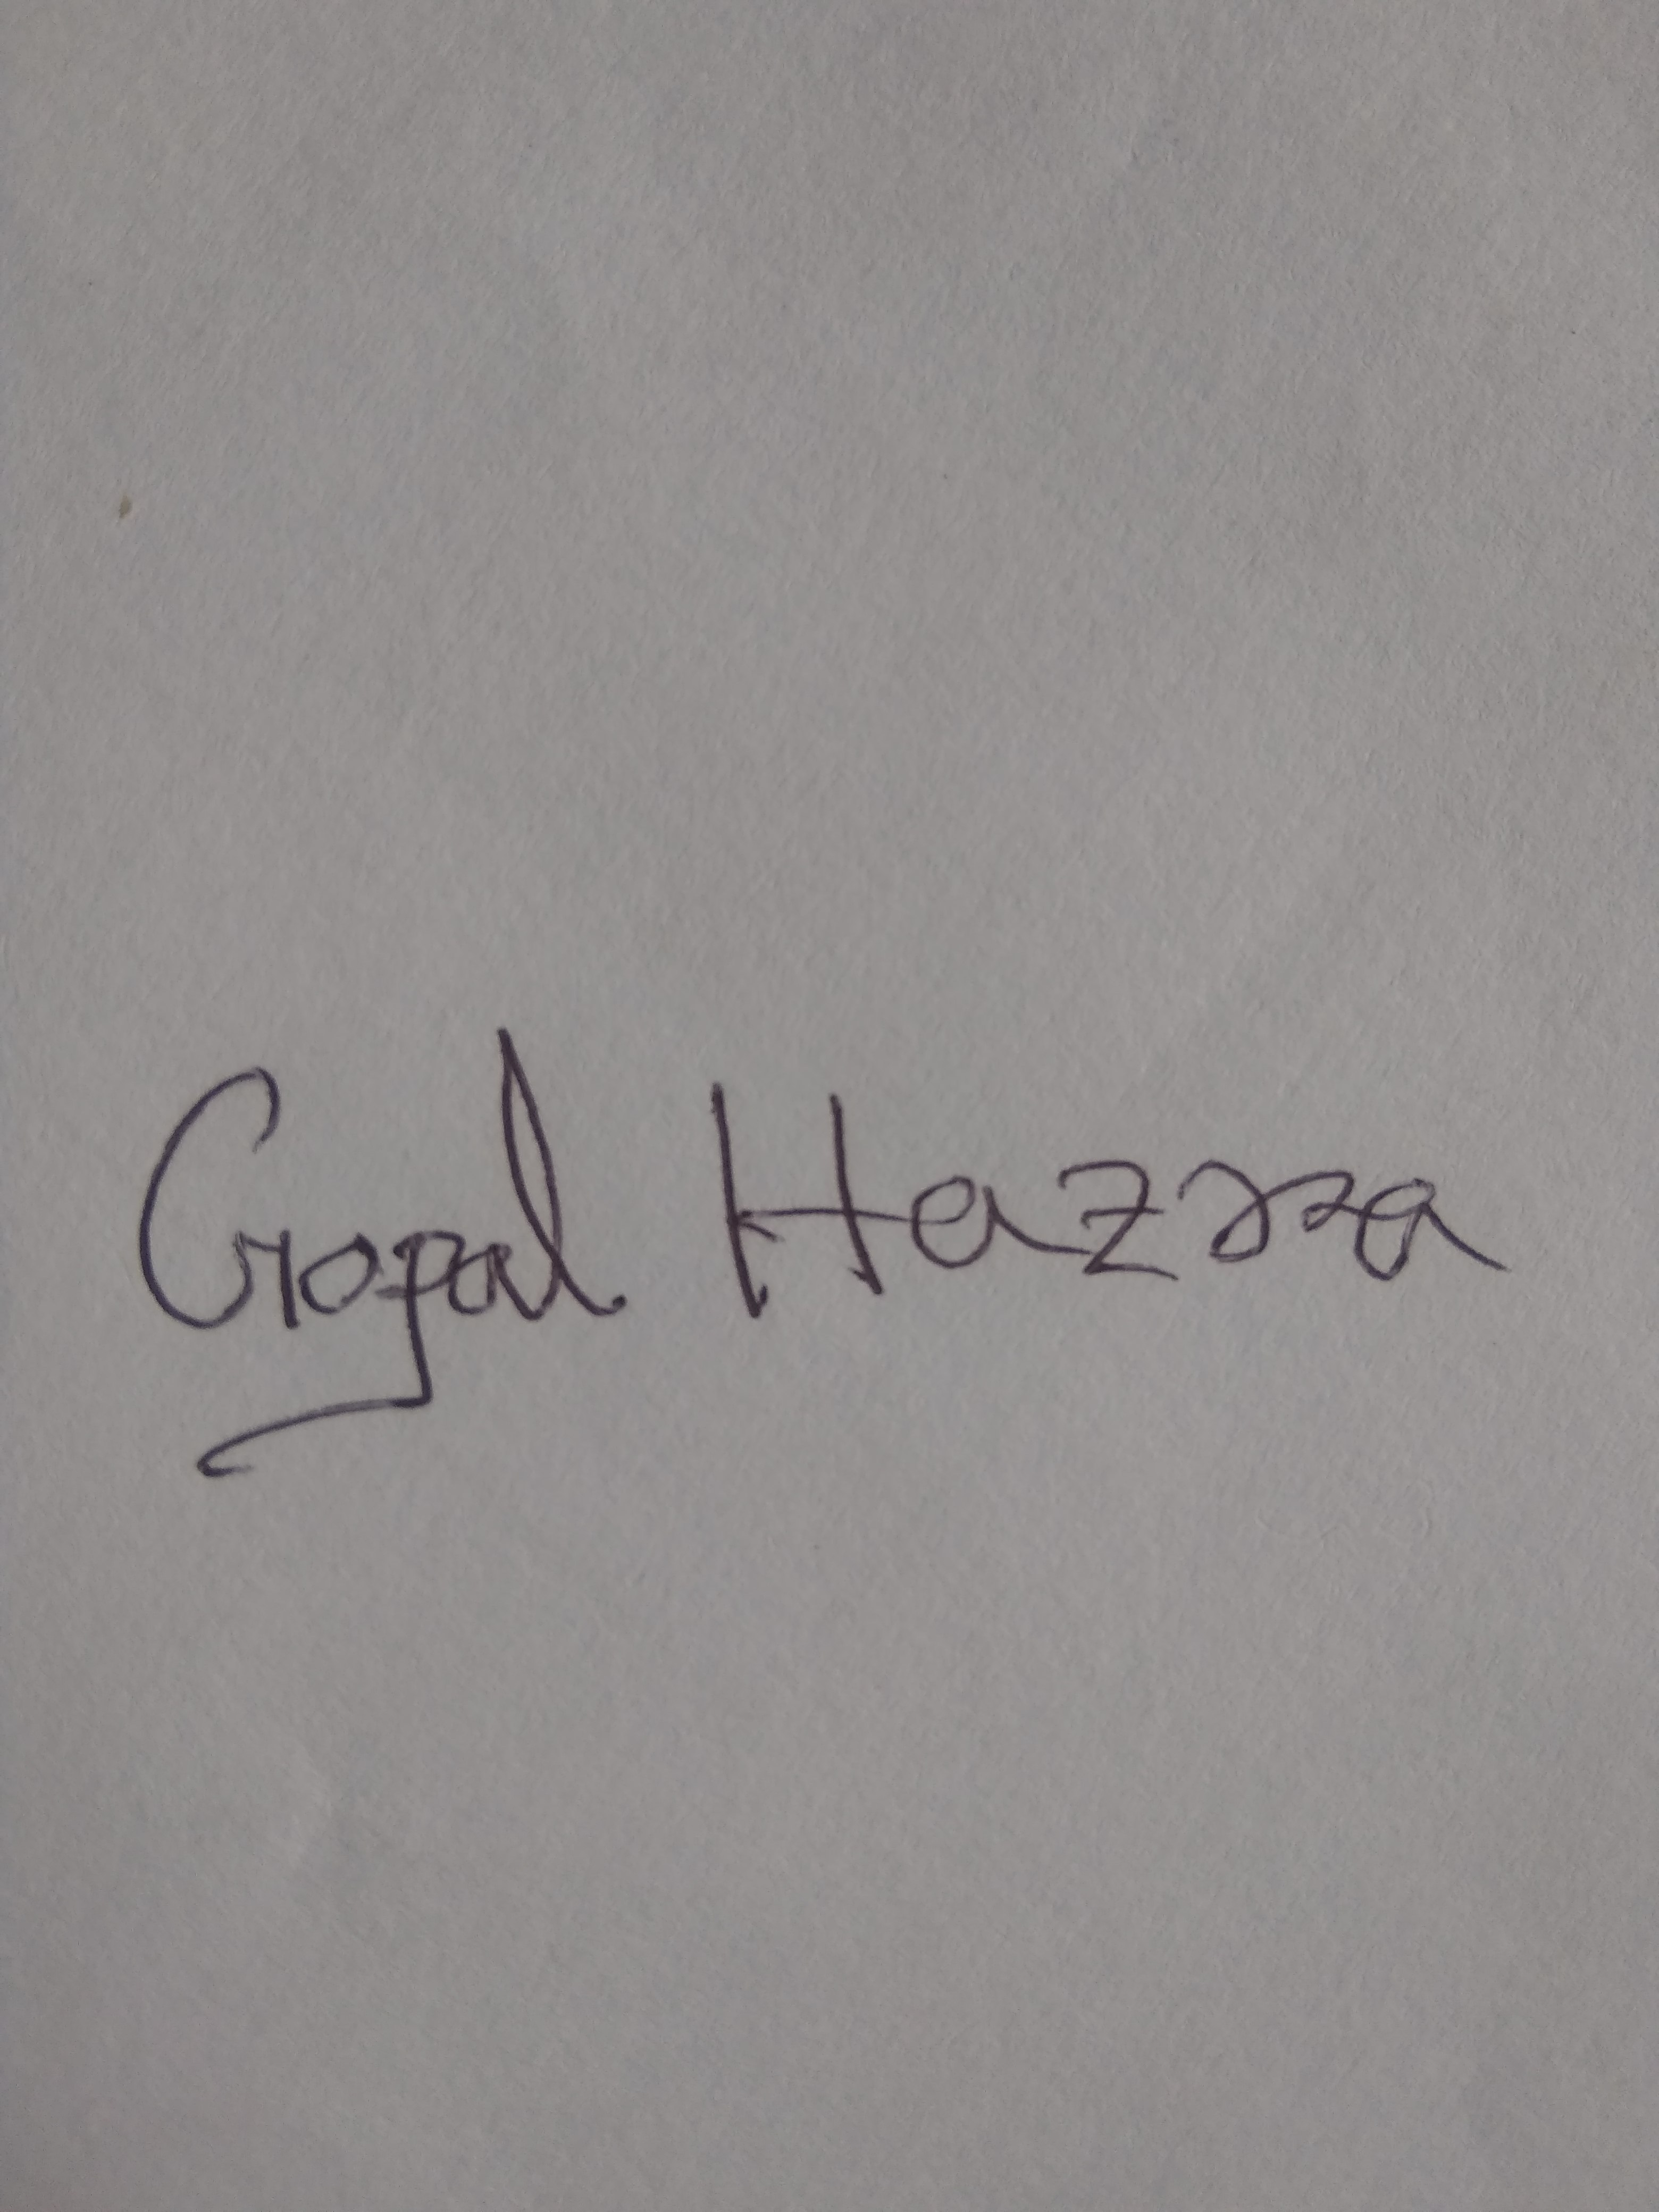 Gopal Hazra